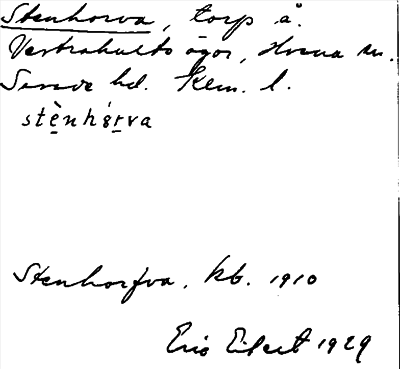 Stenhorva, torp å.
Västrahults ägor, Hvena sn.
Sevede hd. Kalm. l.
stènhórva
Stenhorfva. kb. 1910
Eric Eilert 1929